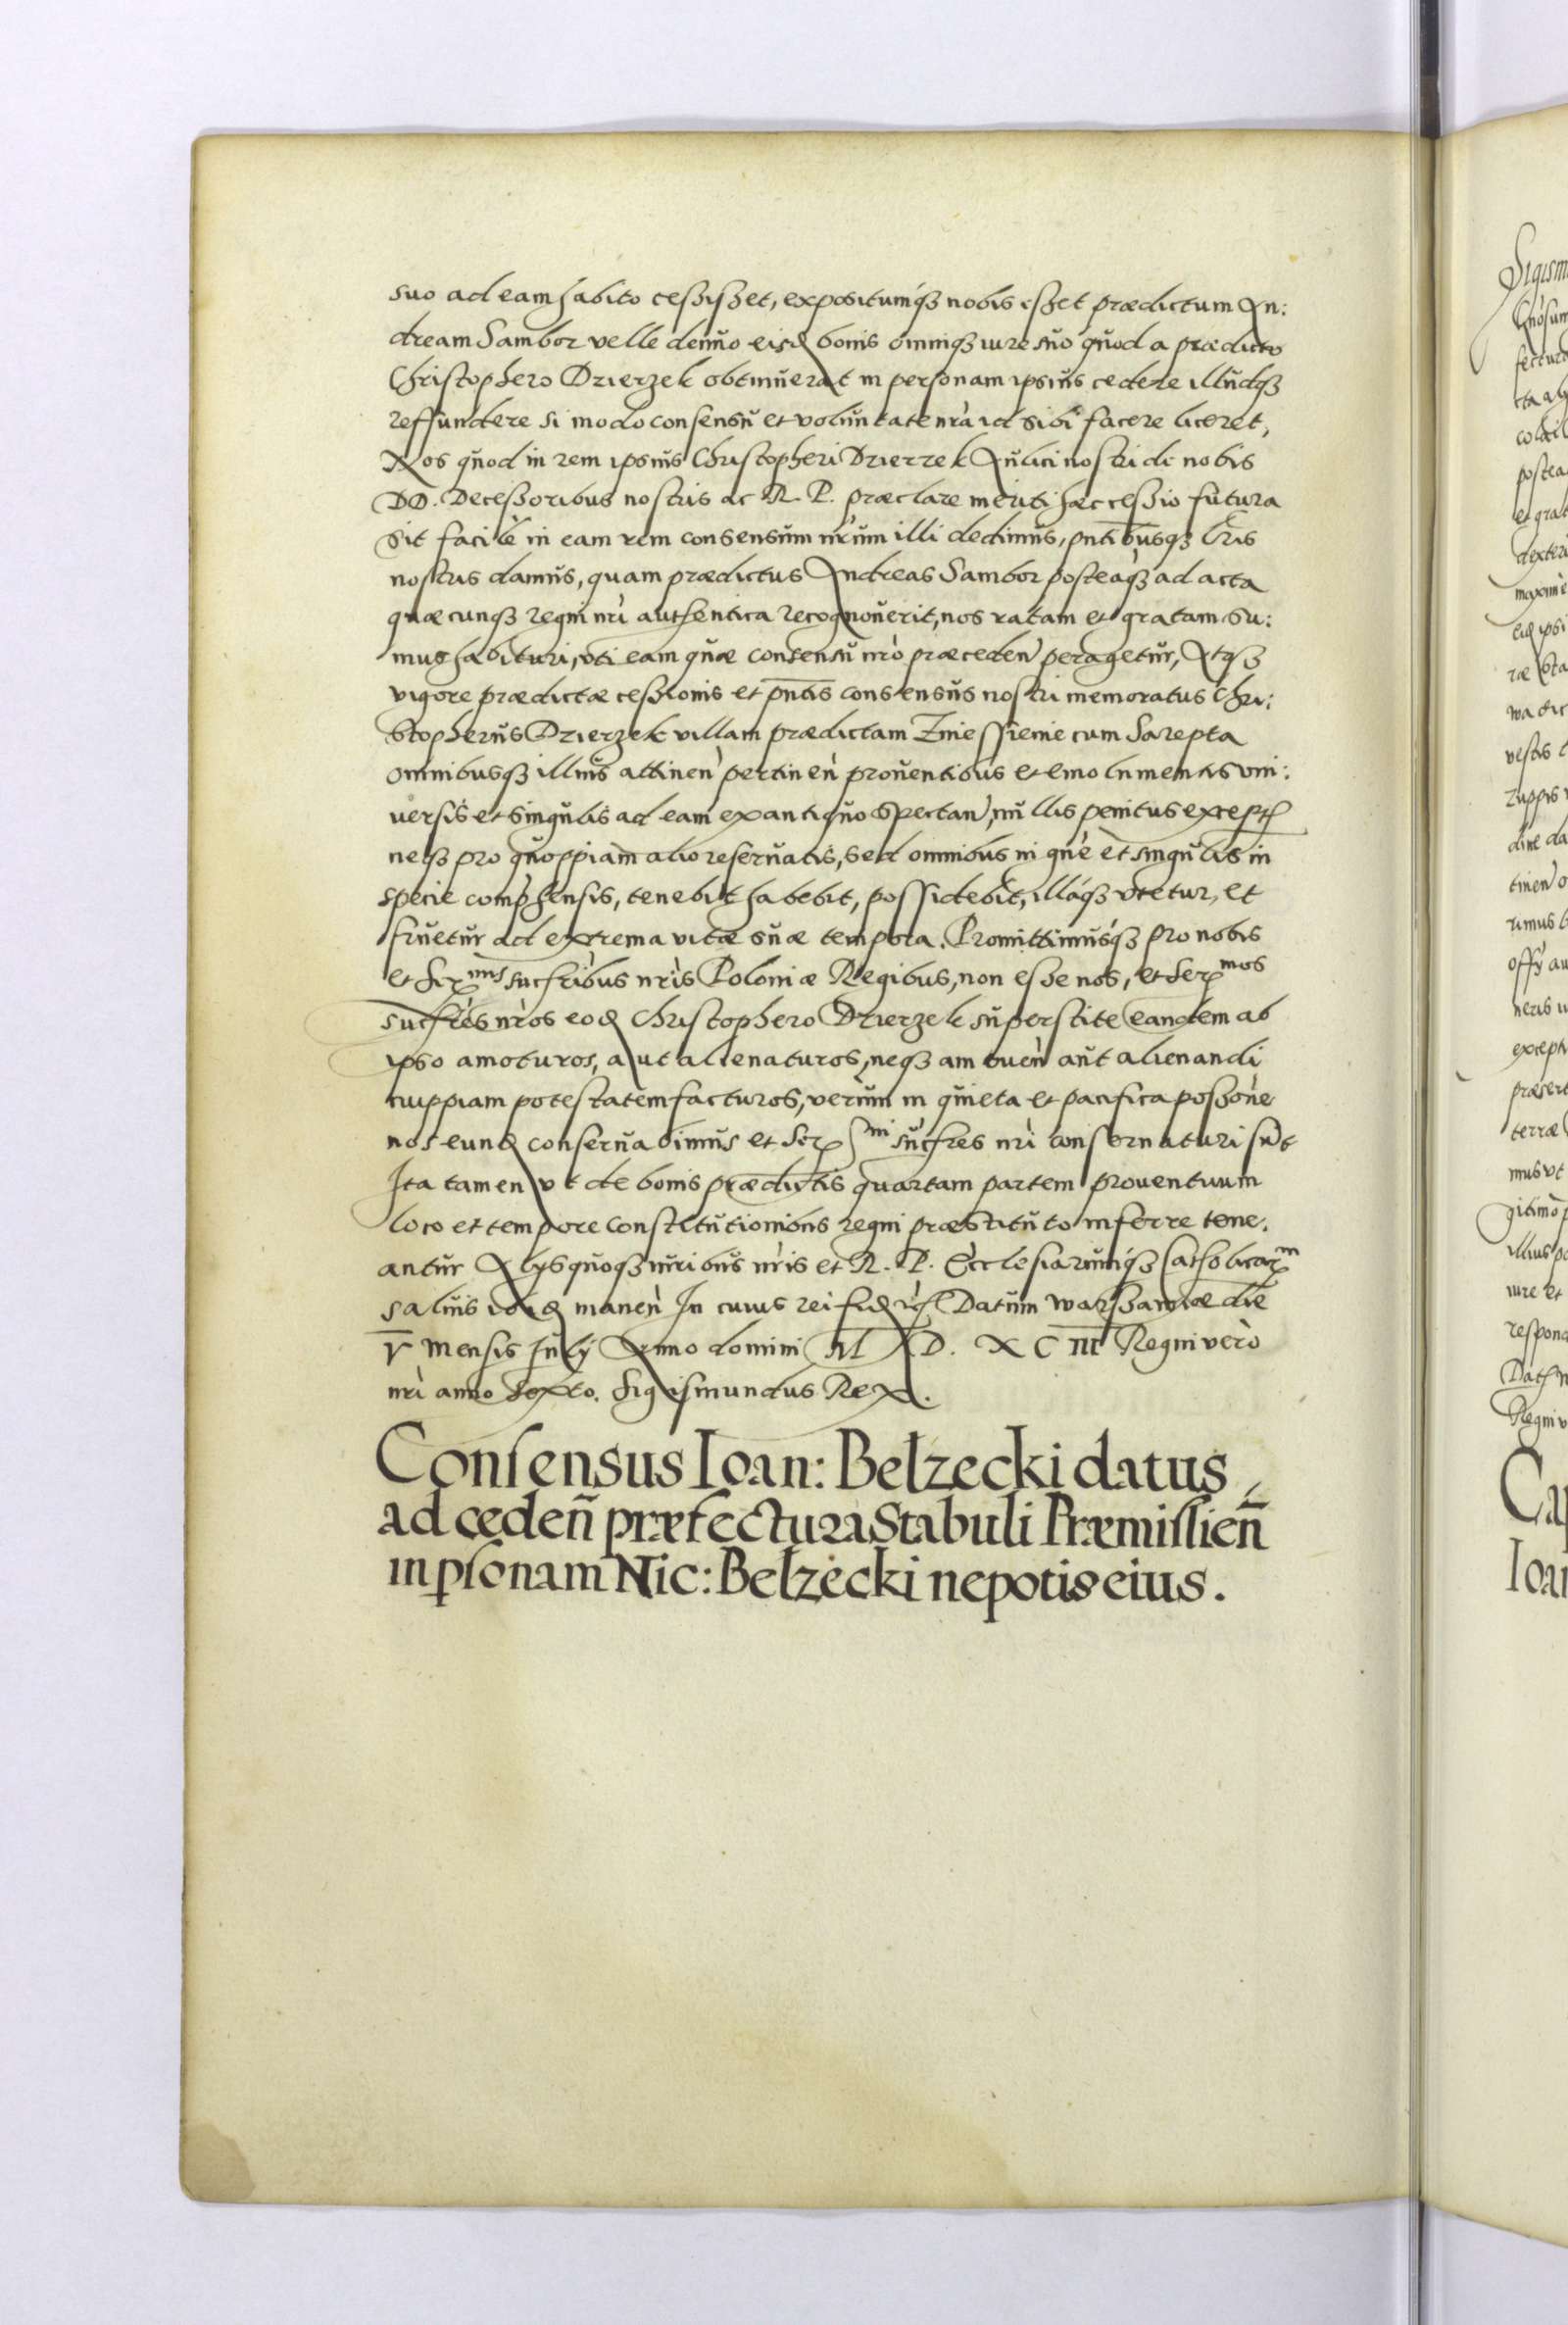 suo ad eam habito cessisset, expositumq₃ nobis esset prædictum An:
dream Sambor velle denuo eisd bonis omniq₃ iure suo quod a prædicto
Christophero Dzierzek obtinuerat in personam ipsius cedere illudq₃
reffundere si modo consensu et voluntate nrà id sibi facere liceret,
Nos quod in rem ipsius Christopheri Dzierzek Aulici nostri de nobis
DD. Decessoribus nostris ac R. P. præclare meriti hæc cessio futura
sit facile in eam rem consensum nrùm illi dedimus, pn̄tibusq₃ lr̄is
nostris damus, quam prædictus Andreas Sambor posteaq₃ ad acta
quæcunq₃ regni nrì authentica recognoverit, nos ratam et gratam su:
mus habituri, uti eam quæ consensu nrò præceden̄ peragetur, Atq₃
vigore prædictæ cessionis et pn̄tis consensus nostri memoratus Chri:
stopherus Dzierzek villam prædictam Zniessienie cum Sarepta
omnibusq₃ illius attinen̄ pertinen̄ proventibus et emolumentis vni:
uersis et singulis ad eam ex antiquo spectan̄, nullis penitus except
neq₃ pro quoppiam alio reservatis, sed omnibus in gn̄e et singulis in
specie comp̀hensis, tenebit habebit, possidebit, illaq₃ vtetur, et
fruetur ad extrema vitæ suæ tempora. Promittimusq₃ pro nobis
et Ser^mis sucſribus nrìs Poloniæ Regibus, non esse nos, et Ser^mos
sucſrès nròs eod Christophero Dzierzek superstite eandem ab
ipso amoturos, aut alienaturos, neq₃ amouen̄ aut alienandi
cuippiam potestatem facturos, verum in quieta et pacifica possòne
nos eund conservabimus et Ser^mi sucſres nrì conservaturi sūt
Ita tamen vt de bonis prædictis quartam partem prouentuum
loco et tempore constitutionibus regni præstituto inferre tene.
antur Alys quoq₃ iuribus nrìs et R. P. Ecclesiarumq₃ Catholicar^m
saluis ibid manen̄ In cuius rei fid Datum Warssawiæ die
V mensis July Anno domini M D. XC III Regni verò
nrì anno sexto. Sigismundus Rex.
Consensus Ioan: Belzecki datus
ad ceden̄ præfectura Stabuli Præmislien̄
in psonam Nic: Belzecki nepotis eius.